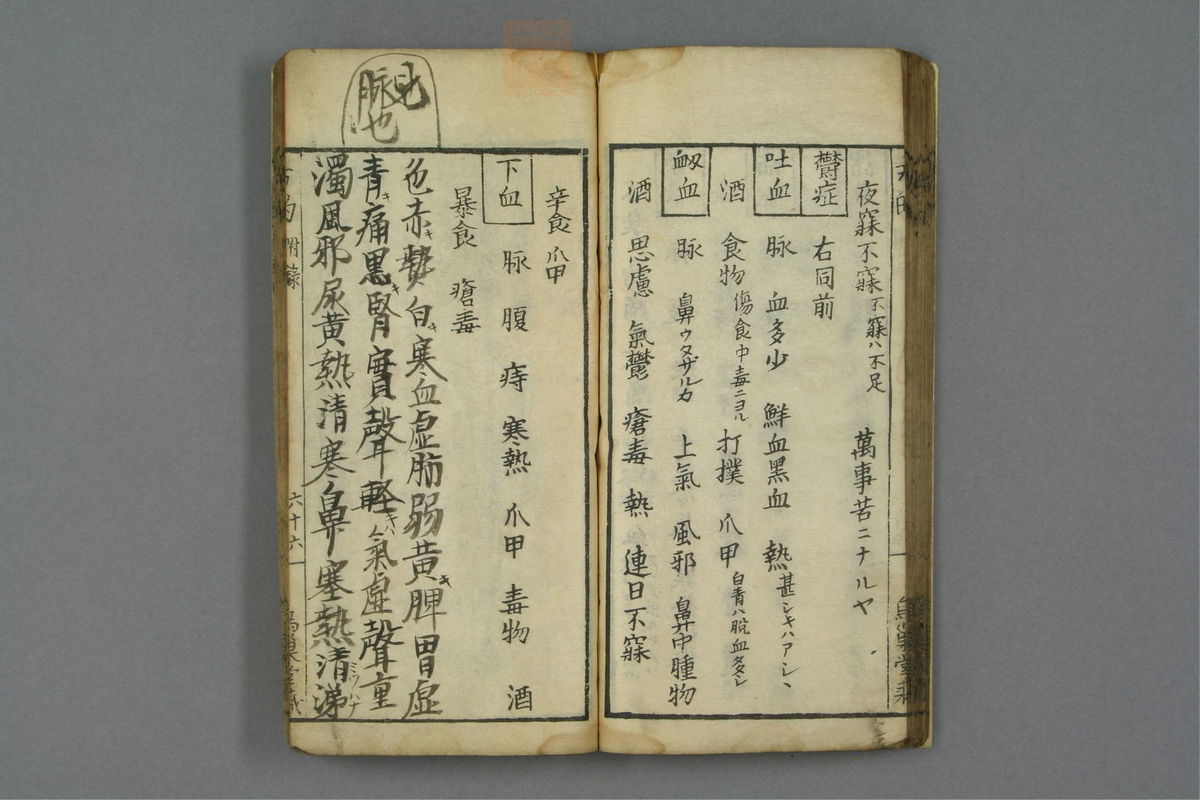 夜寐不寐 不寐ハ不足 萬事苦ニナルヤ
鬱症 右同前
吐血 脉 血多少 鮮血黒血 熱 甚シキハアシヽ
酒 食物 傷食中毒ニヨル 打撲 爪甲 白青ハ脱血多シ
衂血 脉 鼻ウタザルカ 上氣 風邪 鼻中腫物
酒 思慮 氣鬱 瘡毒 熱 連日不寐
辛食 爪甲
下血 脉 腹 痔 寒熱 爪甲 毒物 酒
暴食 瘡毒
見脉也
色赤キ熱白キ寒血虚肺弱黄キ脾胃虚
青キ痛黒キ腎實聲軽キハ氣虚聲重
濁風邪尿黄熱清寒鼻塞熱清涕ミヅハナ
附録
六十六